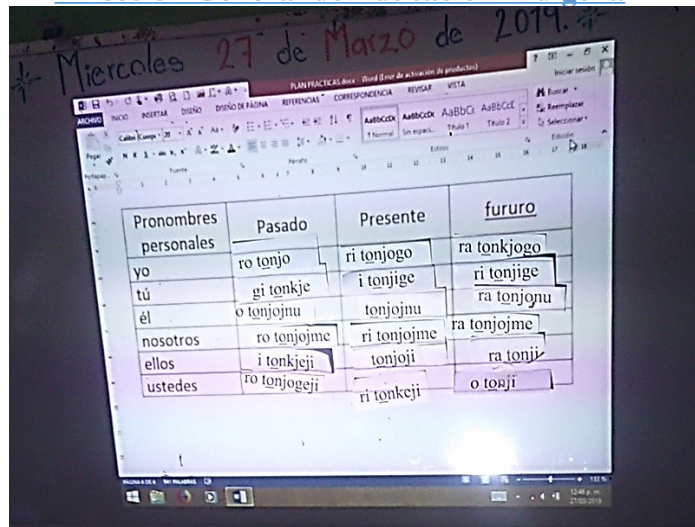 Miercoles 27 de Marzo de 2019.
PLAN PRACTICAS.docx - Word (Error de activación de productos)
Iniciar sesión
ARCHIVO INICIO INSERTAR DISEÑO DISEÑO DE PÁGINA REFERENCIAS CORRESPONDENCIA REVISAR VISTA
Calibri (Cuerpo) 20
Pegar
N K S
AaBbCcDc AaBbCcDc AaBbCc AaBbCcC
1 Normal Sin espaci... Título 1 Título 2
Buscar
Reemplazar
Seleccionar
Portapap... Fuente Párrafo Estilos Edición
Pronombres personales Pasado Presente fururo
yo ro tonjo ri tonjogo ra tonkjogo
tú gi tonkje i tonjige ri tonjige
él o tonjojnu tonjojnu ra tonjonu
nosotros ro tonjojme ri tonjojme ra tonjojme
ellos i tonkjeji tonjoji ra tonji
ustedes ro tonjogeji ri tonkeji o tonji
PÁGINA 6 DE 6 941 PALABRAS
132 %
12:46 p. m.
27/03/2019